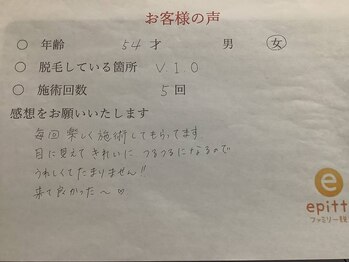 お客様の声
○ 年齢 54才 男 女
○ 脱毛している箇所 V.I.O
○ 施術回数 5回
感想をお願いいたします
毎回楽しく施術してもらってます
目に見えてきれいに つるつるになるので
うれしくてたまりません!!
来て良かった〜♡
e
epitt
ファミリー脱